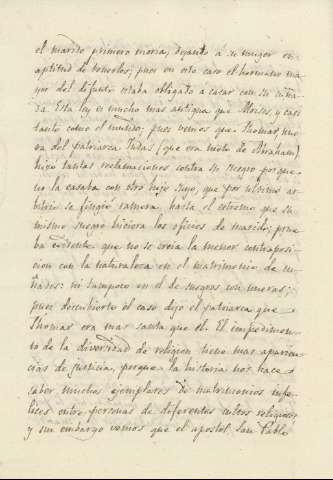 el marido primero moria, dejando a su muger en
aptitud de tenerlos; pues en este caso el hermano ma
yor del difunto estaba obligado a casar con su cuña
da. Esta ley es mucho mas antigua que Moises, y casi
tanto como el mundo; pues vemos que Thamar, nue
ra del patriarca Judas (que era nieto de Abraham)
hizo tantas reclamaciones contra su suegro porque
no la casaba con otro hijo suyo, que por ultimo ar
bitrio se fingió ramera hasta el estremo que su
mismo suegro hiciera los oficios de marido; prue
ba evidente que no se creia la menor contraposi
cion con la naturaleza en el matrimonio de cu
ñados: ni tampoco en el de suegros con nueras;
pues descubierto el caso dijo el patriarca que
Thamar era mas santa que él. El impedimen
to de la diversidad de religion tiene mas aparien
cias de justicia, porque la historia nos hace
saber muchos ejemplares de matrimonios infe
lices entre personas de diferentes cultos religiosos;
y sin embargo vemos que el apostol San Pablo